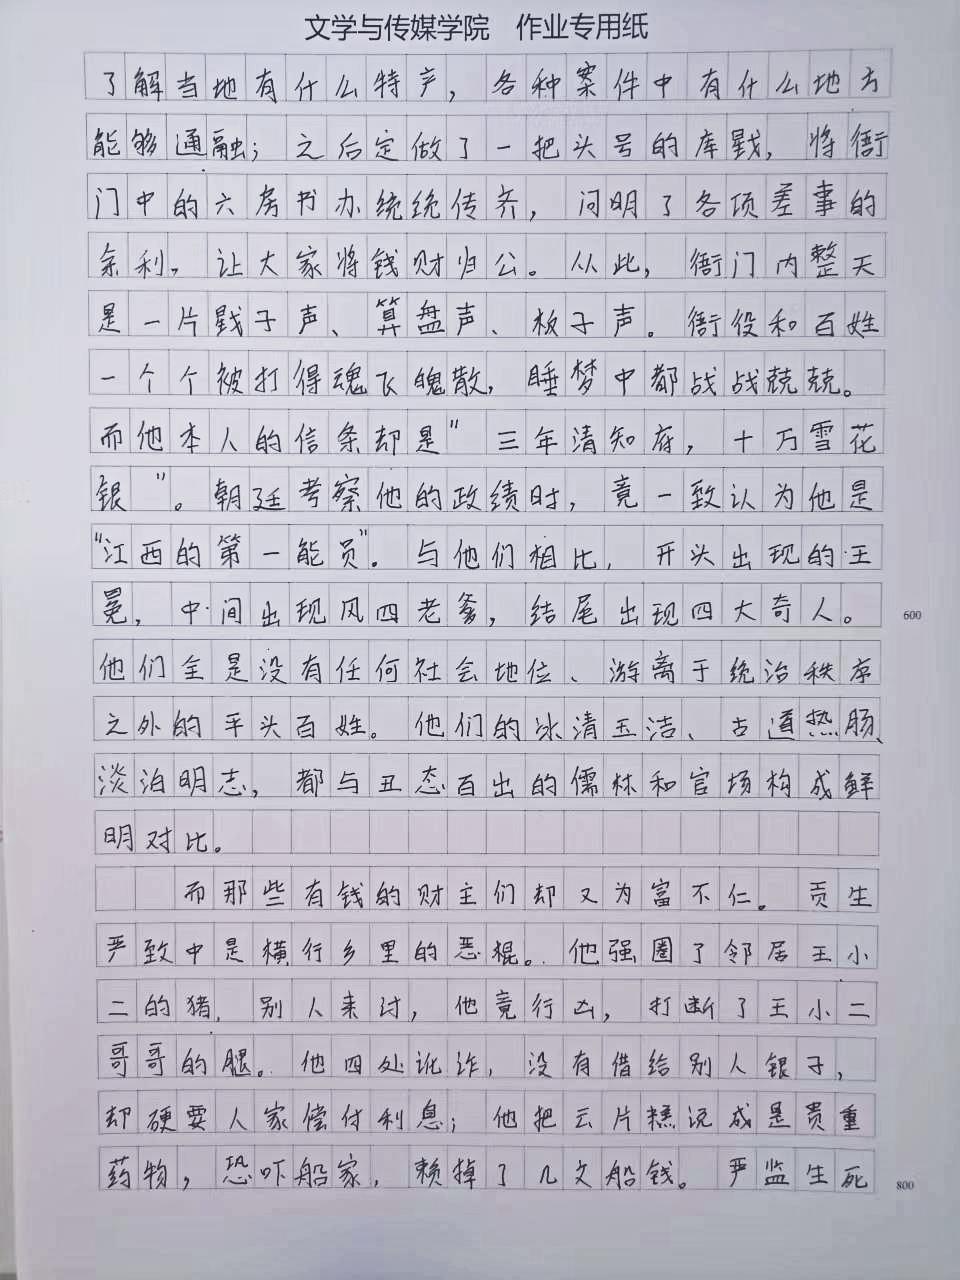 文学与传媒学院 作业专用纸
了解当地有什么特产，各种案件中有什么地方
能够通融；之后定做了一把头号的库戥，将衙
门中的六房书办统统传齐，问明了各项差事的
余利，让大家将钱财归公。从此，衙门内整天
是一片戥子声、算盘声、板子声。衙役和百姓
一个个被打得魂飞魄散，睡梦中都战战兢兢。
而他本人的信条却是“三年清知府，十万雪花
银”。朝廷考察他的政绩时，竟一致认为他是
“江西的第一能员”。与他们相比，开头出现的王
冕，中间出现风四老爹，结尾出现四大奇人。 600
他们全是没有任何社会地位、游离于统治秩序
之外的平头百姓。他们的冰清玉洁、古道热肠、
淡泊明志，都与丑态百出的儒林和官场构成鲜
明对比。
而那些有钱的财主们却又为富不仁。贡生
严致中是横行乡里的恶棍。他强圈了邻居王小
二的猪，别人来讨，他竟行凶，打断了王小二
哥哥的腿。他四处讹诈，没有借给别人银子，
却硬要人家偿付利息；他把云片糕说成是贵重
药物，恐吓船家，赖掉了几文船钱。严监生死 800